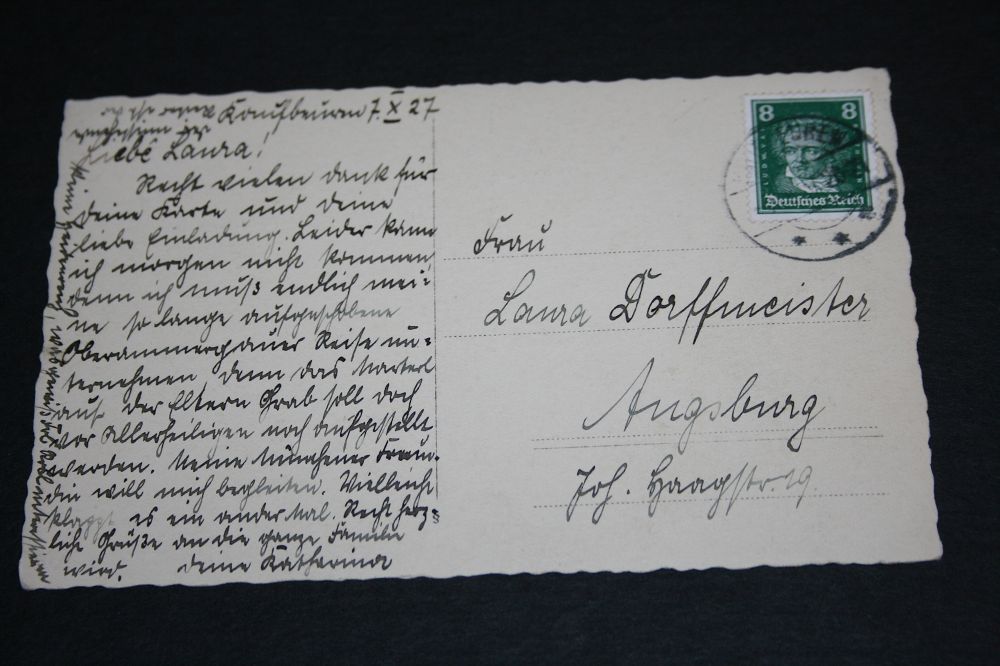 Kaufbeuren 7. X 27
Liebe Laura!
Recht vielen Dank für
deine Karte und deine
liebe Einladung. Leider kann
ich morgen nicht kommen,
denn ich muß endlich mei=
ne so lange aufgeschobene
Oberammergauer Reise un=
ternehmen, denn das Marterl
auf der Eltern Grab soll doch
vor Allerheiligen noch aufgestellt
werden. Meine Münchener Freun=
din will mich begleiten. Vielleicht
klappt es ein ander Mal. Recht herz=
liche Grüße an die ganze Familie
deine Katharina
wird.
8 8
Deutsches Reich
Frau
Laura Dorffmeister
Augsburg
Joh. Haagstr. 19